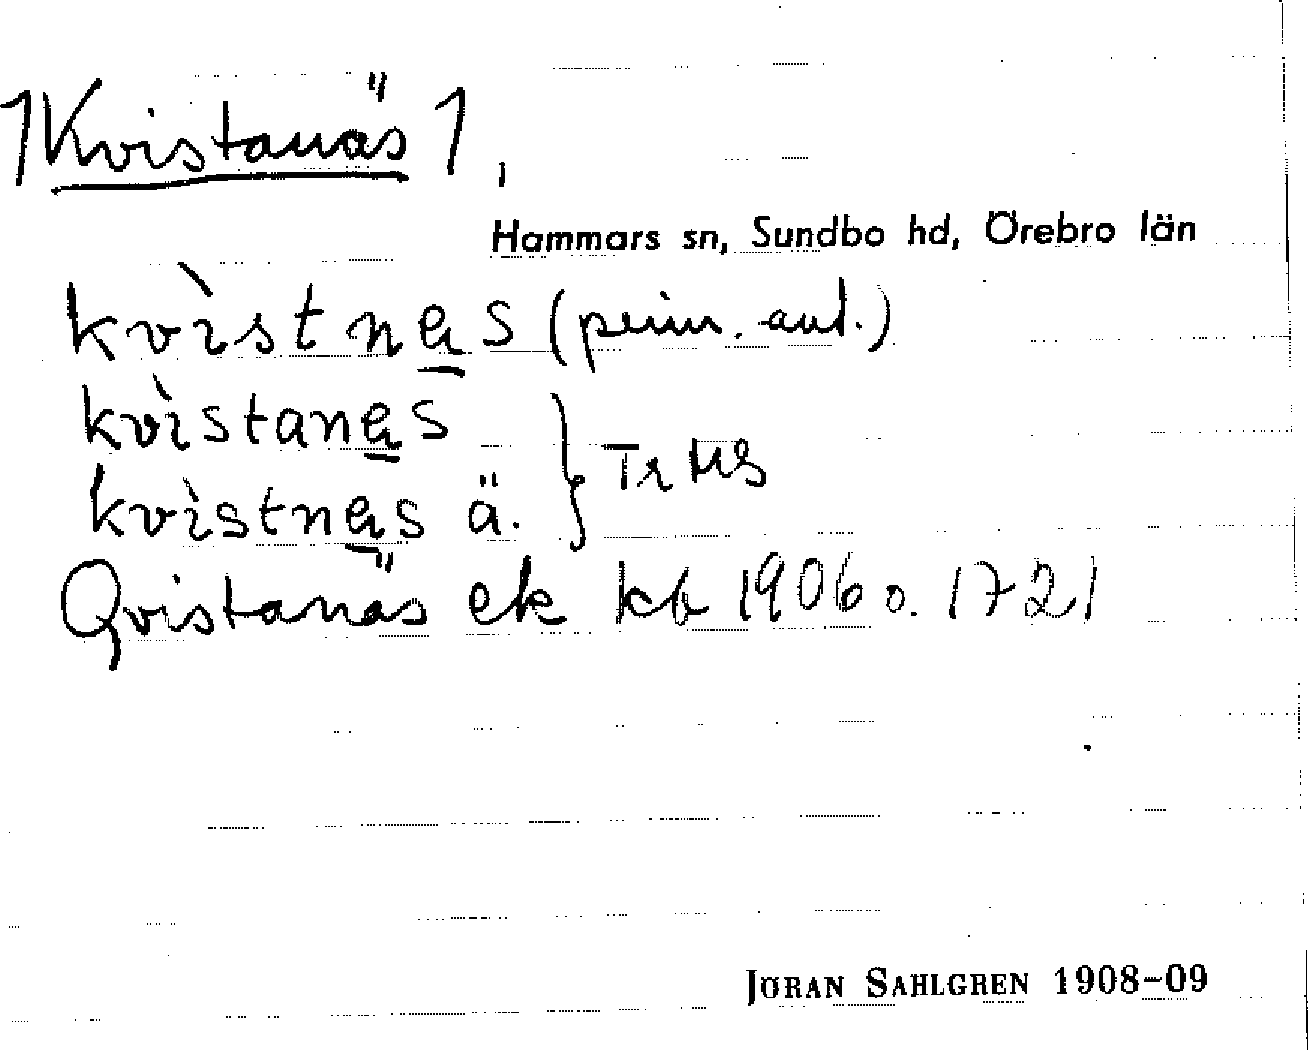 1 Kvistanäs 1,
Hammars sn, Sundbo hd, Örebro län
kvìstnes (prim. aut.)
kvìstanes
kvìstnes ä. } Tr
Qvistanäs ek kb 1906 o. 1721
JÖRAN SAHLGREN 1908-09